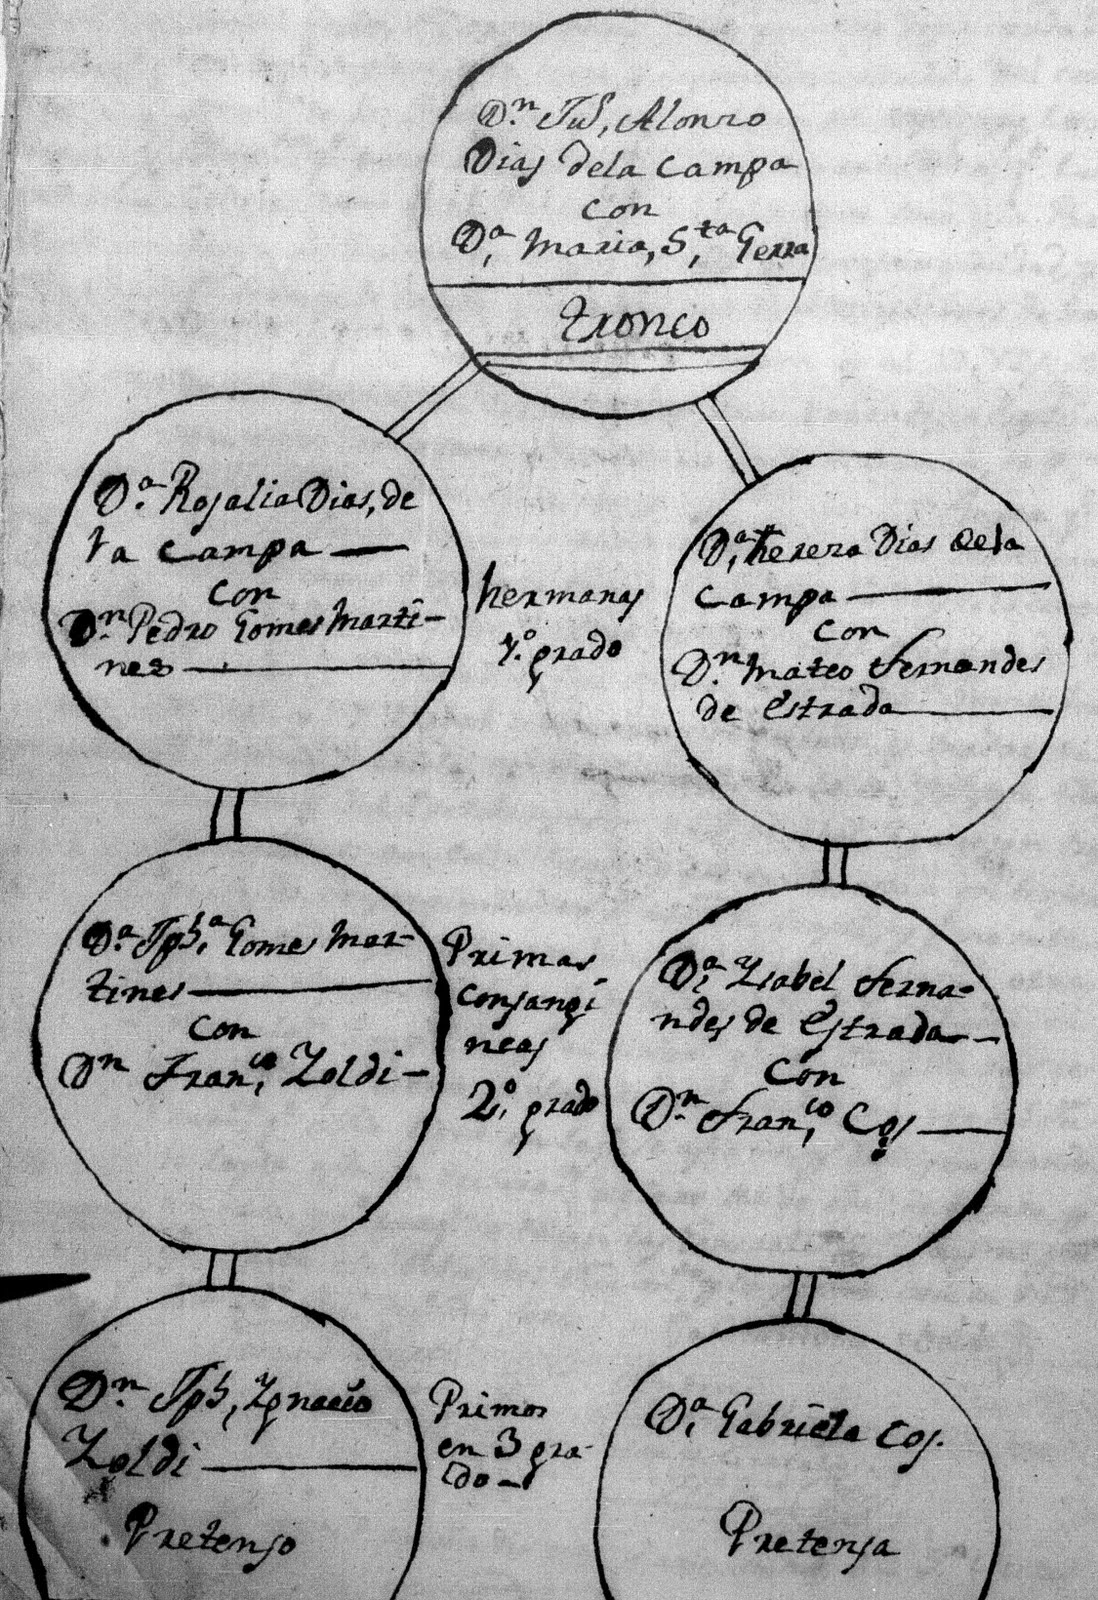 D.ⁿ Jul, Alonzo
Dias dela campa
con
D.ª, Maria, S,ᵗᵃ Gerra
tronco
D.ª Rosalia Dias, de
la campa
con
D.ⁿ Pedro Gomes Marti-
nes
hermanas
1.º grado
D.ª, therera Dias dela
Campa
con
D.ⁿ Mateo fernandes
de Estrada
D.ª Jph.ª Gomes Mar-
tines
con
Dⁿ Fran,ᶜᵒ Zoldi-
Primas
consangi
neas
2.º grado
D.ª Ysabel ferna-
ndes de Estrada-
con
D.ⁿ fran,ᶜᵒ Cos
Dⁿ Jph, Ygnacio
Zoldi
Pretenso
Primos
en 3 gra-
do-
D.ª Gabriela Cos.
Pretensa